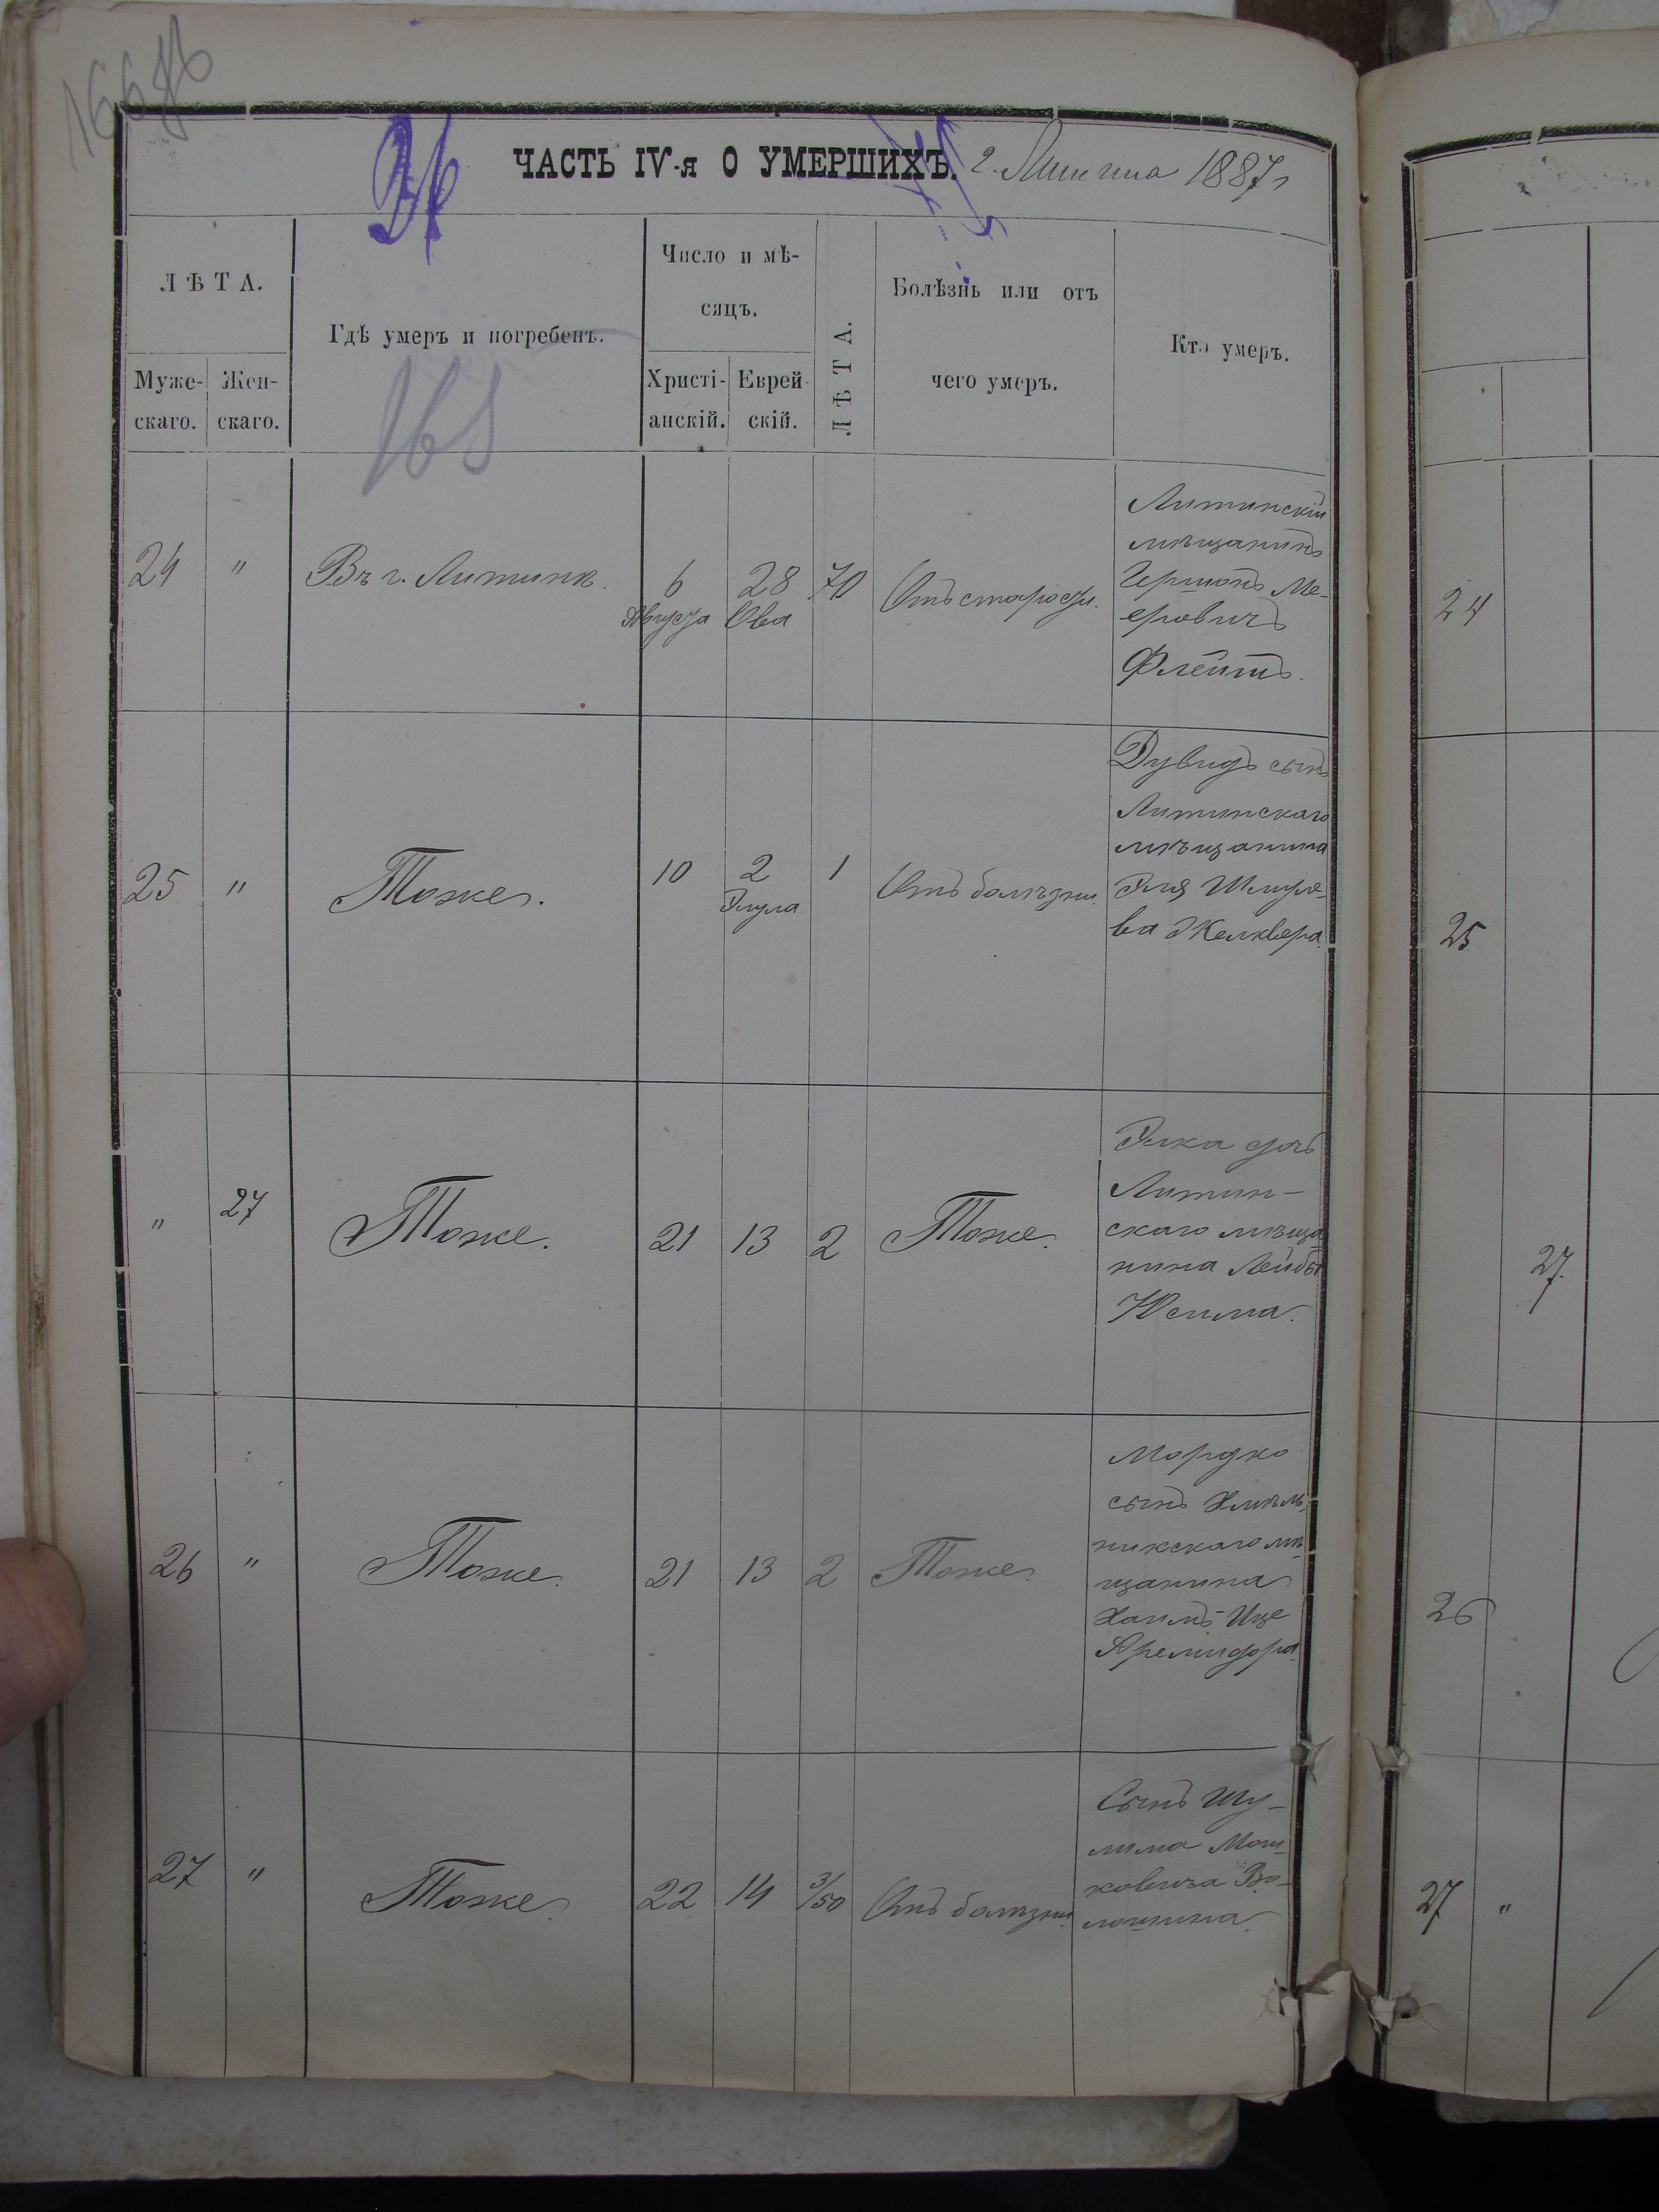 ЧАСТЬ IV-я О УМЕРШИХЪ. г. Литина 1887 г
ЛѢТА.
Мужескаго.
Женскаго.
Гдѣ умеръ и погребенъ.
165
Число и мѣ-
сяцъ.
Христі-
анскій.
Еврей
скій.
ЛѢТА.
Болѣзнь или отъ
чего умеръ.
Кто умеръ.
24 " Въ г. Литинѣ. 6 Августа 28 Ова 70 Отъ старости.
Литинскій
мѣщанинъ
Гершонъ Ме-
еровичъ
Флейтъ.
25 " Тоже. 10 2 Элула 1 Отъ болѣзни.
Дувидъ сынъ
Литинскаго
мѣщанина
Эля Шмуле-
ва Желквера.
" 27 Тоже. 21 13 2 Тоже.
Элка дочь
Литин-
скаго мѣща
нина Лейбы
Юсима.
26 " Тоже. 21 13 2 Тоже.
Мордко
сынъ Хмѣль-
никскаго мѣ-
щанина
Хаимъ-Ице
27 " Тоже. 22 14 3/50 Отъ болѣзни.
Сынъ Шу-
лима Мош-
ковича Во-
лошина.
24
25
27.
26
27 "